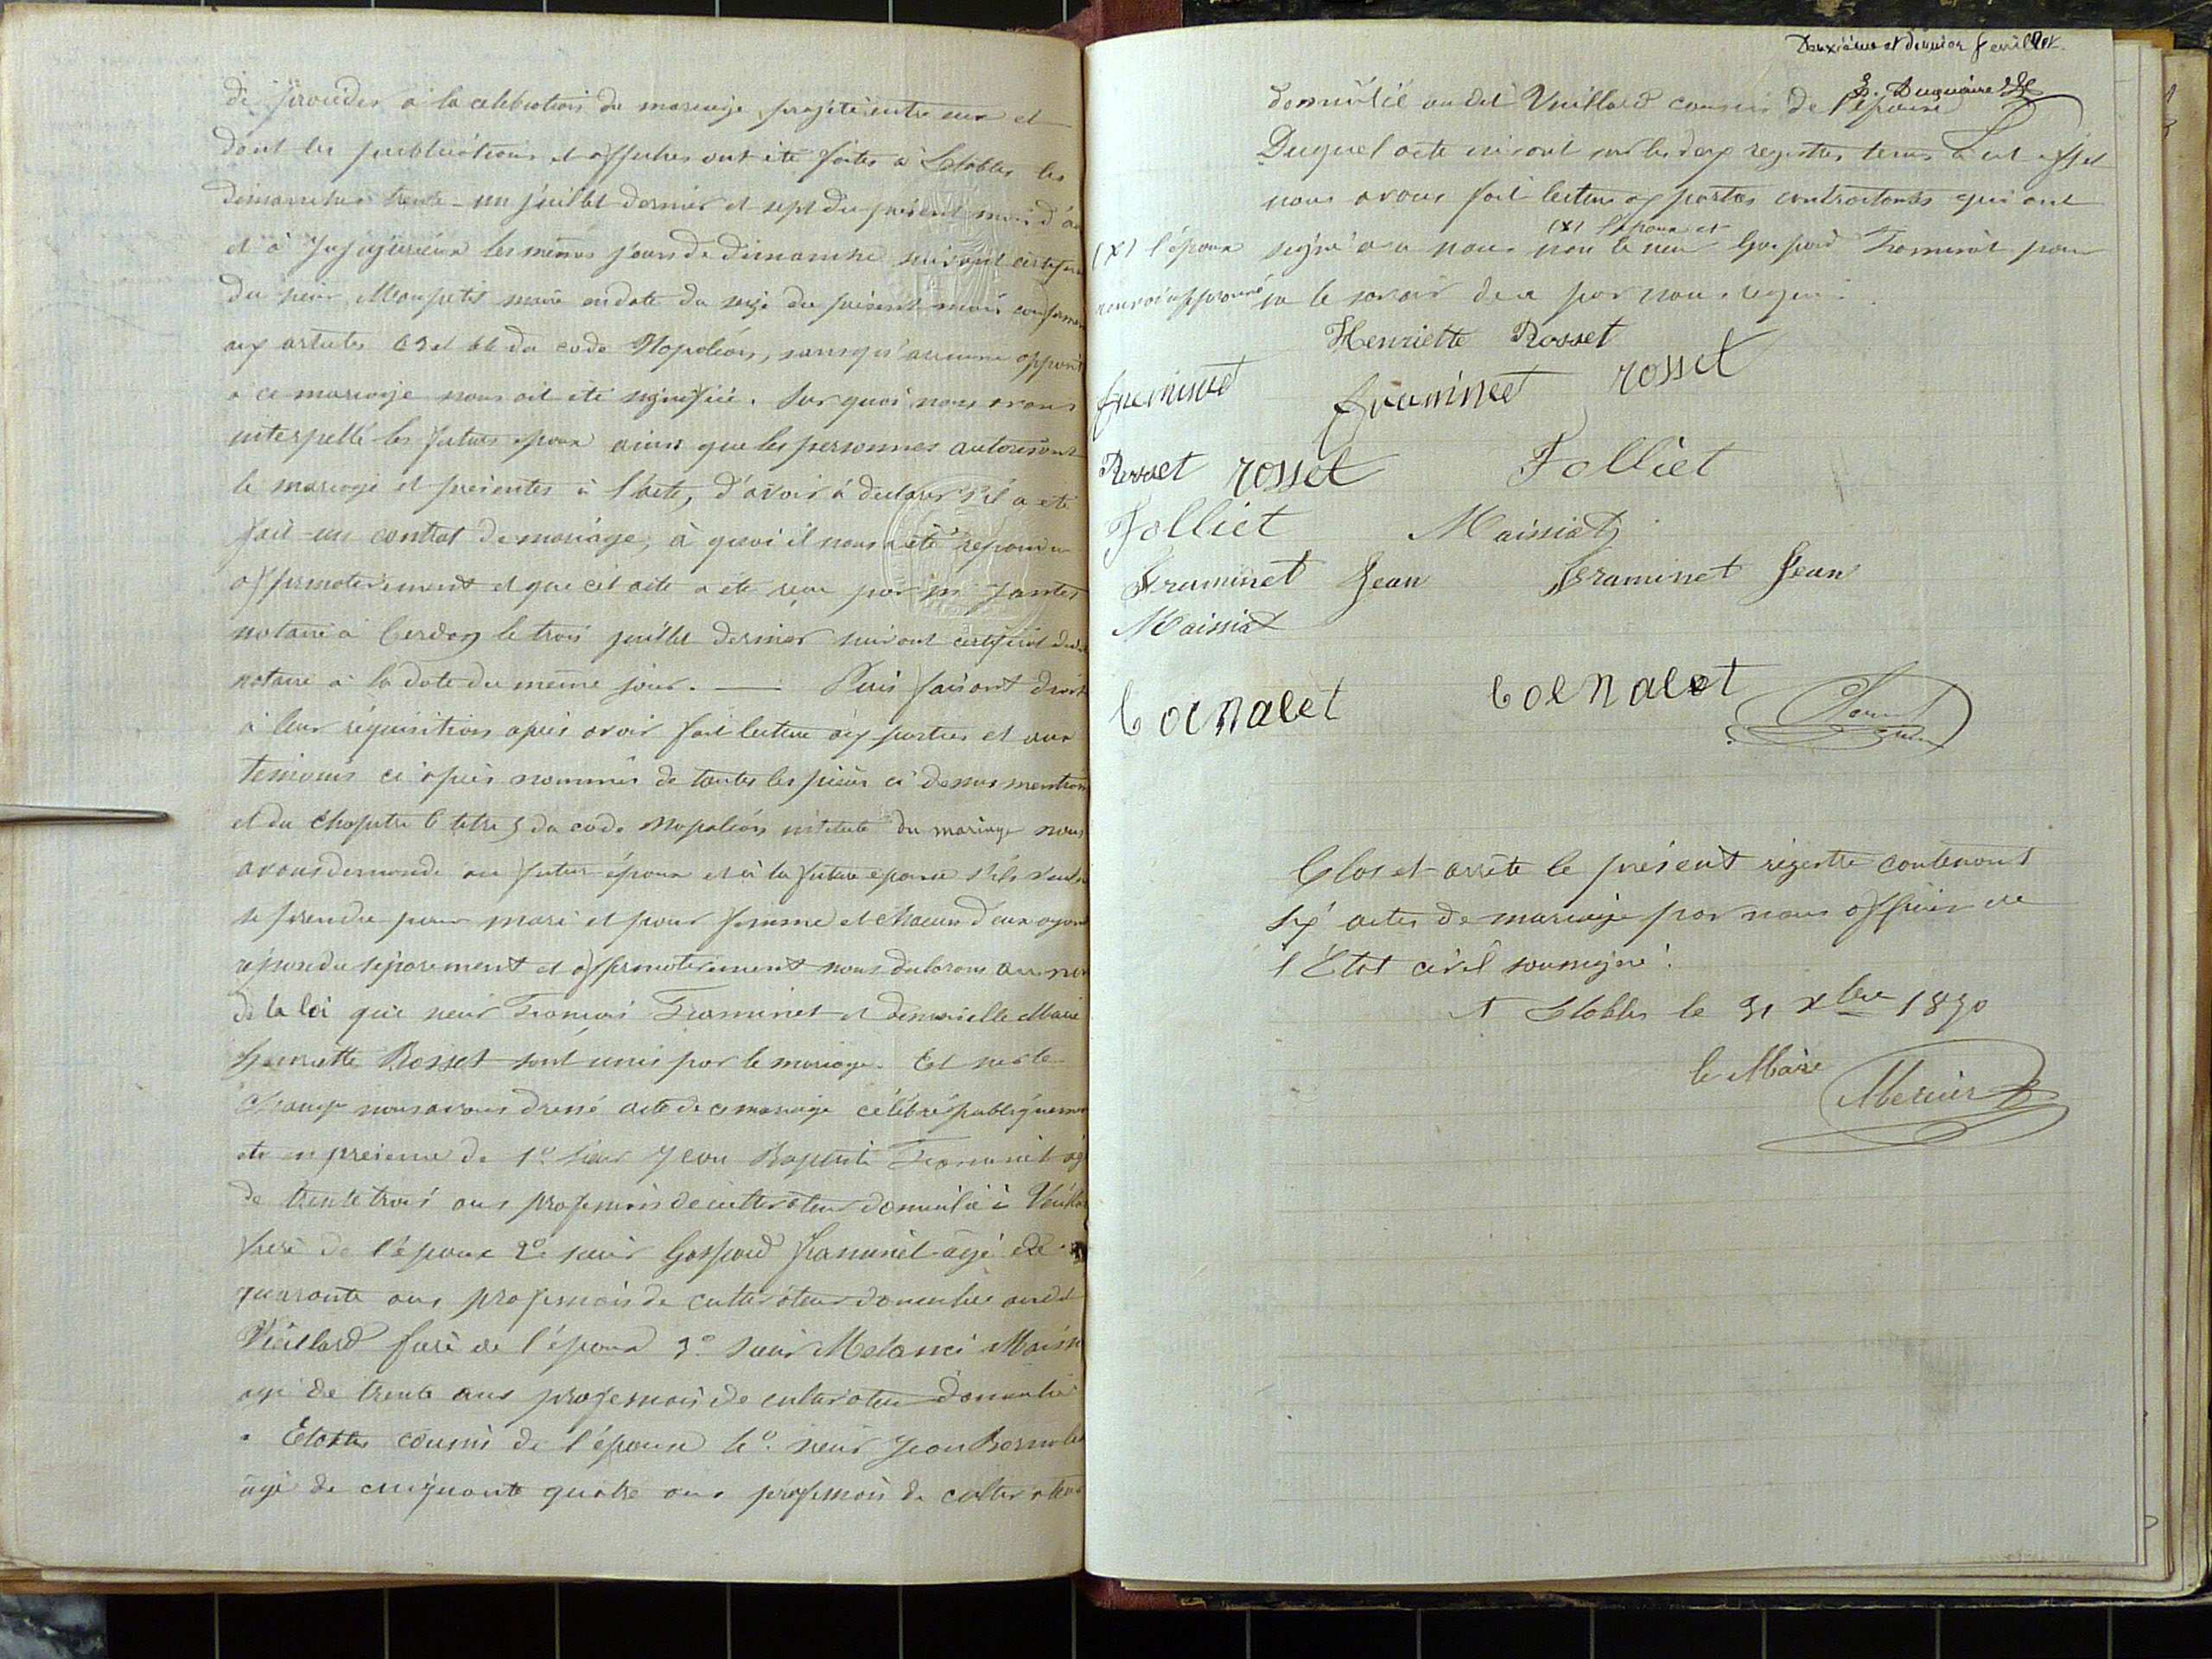 de procéder à la célébration du mariage projeté entre eux et
dont les publications et affiches ont été faites à Etables les
dimanches trente-un juillet dernier et sept du présent mois d'ao
et à Jujurieux les mêmes jours de dimanche suivant certifica
du sieur Monpetit maire en date du seize du présent mois conformem
aux articles 63 et 64 du code Napoléon, sans qu'aucune opposit
à ce mariage nous ait été signifiée. Sur quoi nous avons
interpellé les futurs époux ainsi que les personnes autorisant
le mariage et présentes à l'acte, d'avoir à déclarer s'il a été
fait un contrat de mariage, à quoi il nous a été répondu
affirmativement et que cet acte a été reçu par me
notaire à Cerdon le trois juillet dernier suivant certificat dud
notaire à la date du même jour. — Puis faisant droit
à leur réquisition après avoir fait lecture aux parties et aux
témoins ci après nommés de toutes les pièces ci dessus mention
et du chapitre 6 titre 5 du code Napoléon intitulé du mariage nous
avons demandé au futur époux et à la future épouse s'ils veulent
se prendre pour mari et pour femme et chacun d'eux ayant
répondu séparément et affirmativement nous déclarons au nom
de la loi que sieur François Framinet et demoiselle Marie
Henriette Rosset sont unis par le mariage. Et sur le
champ nous avons dressé acte de ce mariage célébré publiquemen
et en présence de 1° sieur Jean Baptiste Framinet âgé
de trente trois ans profession de cultivateur domicilié à Vieillard
frère de l'époux 2° sieur Gaspard Framinet âgé de
quarante ans profession de cultivateur domicilié audit
Vieillard frère de l'époux 3° sieur Melanci Maissi
âgé de trente ans profession de cultivateur domicilié
à Etables cousin de l'épouse 4° sieur Jean
âgé de cinquante quatre ans profession de cultivateur
Deuxième et dernier feuillet.
domicilié audit Vieillard cousin de l'épouse
Duquel acte inscrit sur les deux registres tenus à cet effet
nous avons fait lecture aux parties contractantes qui ont
(X) l'époux et
(X) l'époux signé avec nous non le sieur Gaspard Framinet pour
renvoi approuvé ne le savoir de ce par nous requis.
Henriette Rosset
framinet framinet rosset
Rosset rosset Folliet
Folliet Maissiat
Framinet Jean Framinet Jean
Maissiat
Cornalet Cornalet
Clos et arrêté le présent régistre contenant
six actes de mariage par nous officier de
l'Etat civil soussigné.
A Etables le 31 xbre 1870
le Maire
Mercier